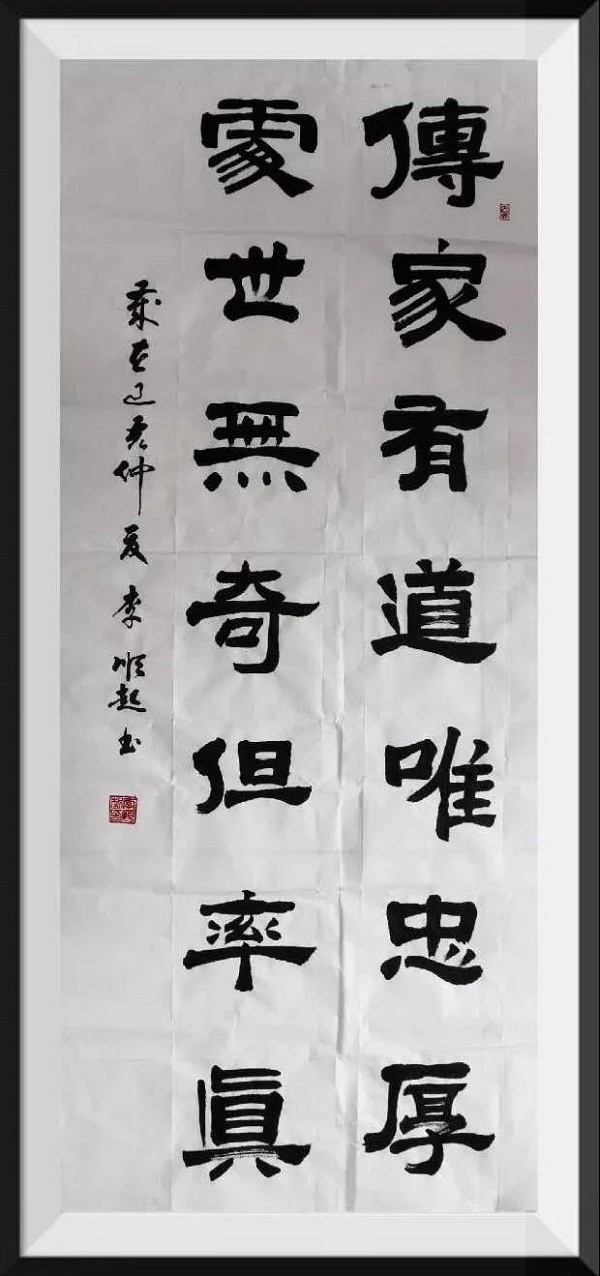 傳家有道唯忠厚
處世無奇但率眞
歲在仲夏李順書